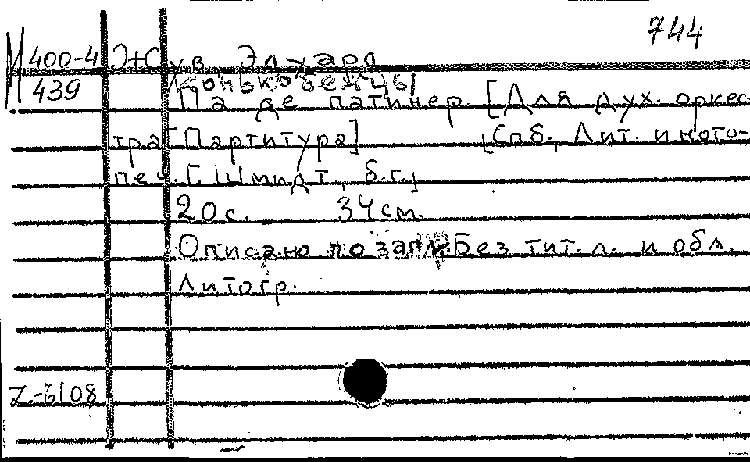 744
М 400-4 Жув, Эдуард
439 Конькобежцы
Па де патинер. [Для дух. оркес-
тра] [Партитура] [Спб., Лит. и ното-
печ. Г. Шмидт, б.г.]
20 с. 34 см.
Описано по загл. Без тит. л. и обл.
Литогр.
Z-6108